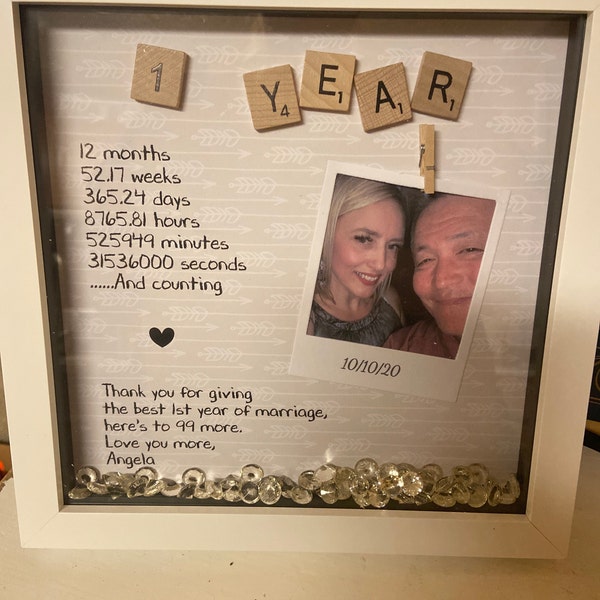 1 YEAR
Y4 E1 A1 R1
12 months
52.17 weeks
365.24 days
8765.81 hours
525949 minutes
31536000 seconds
......And counting
10/10/20
Thank you for giving
the best 1st year of marriage,
here's to 99 more.
Love you more,
Angela